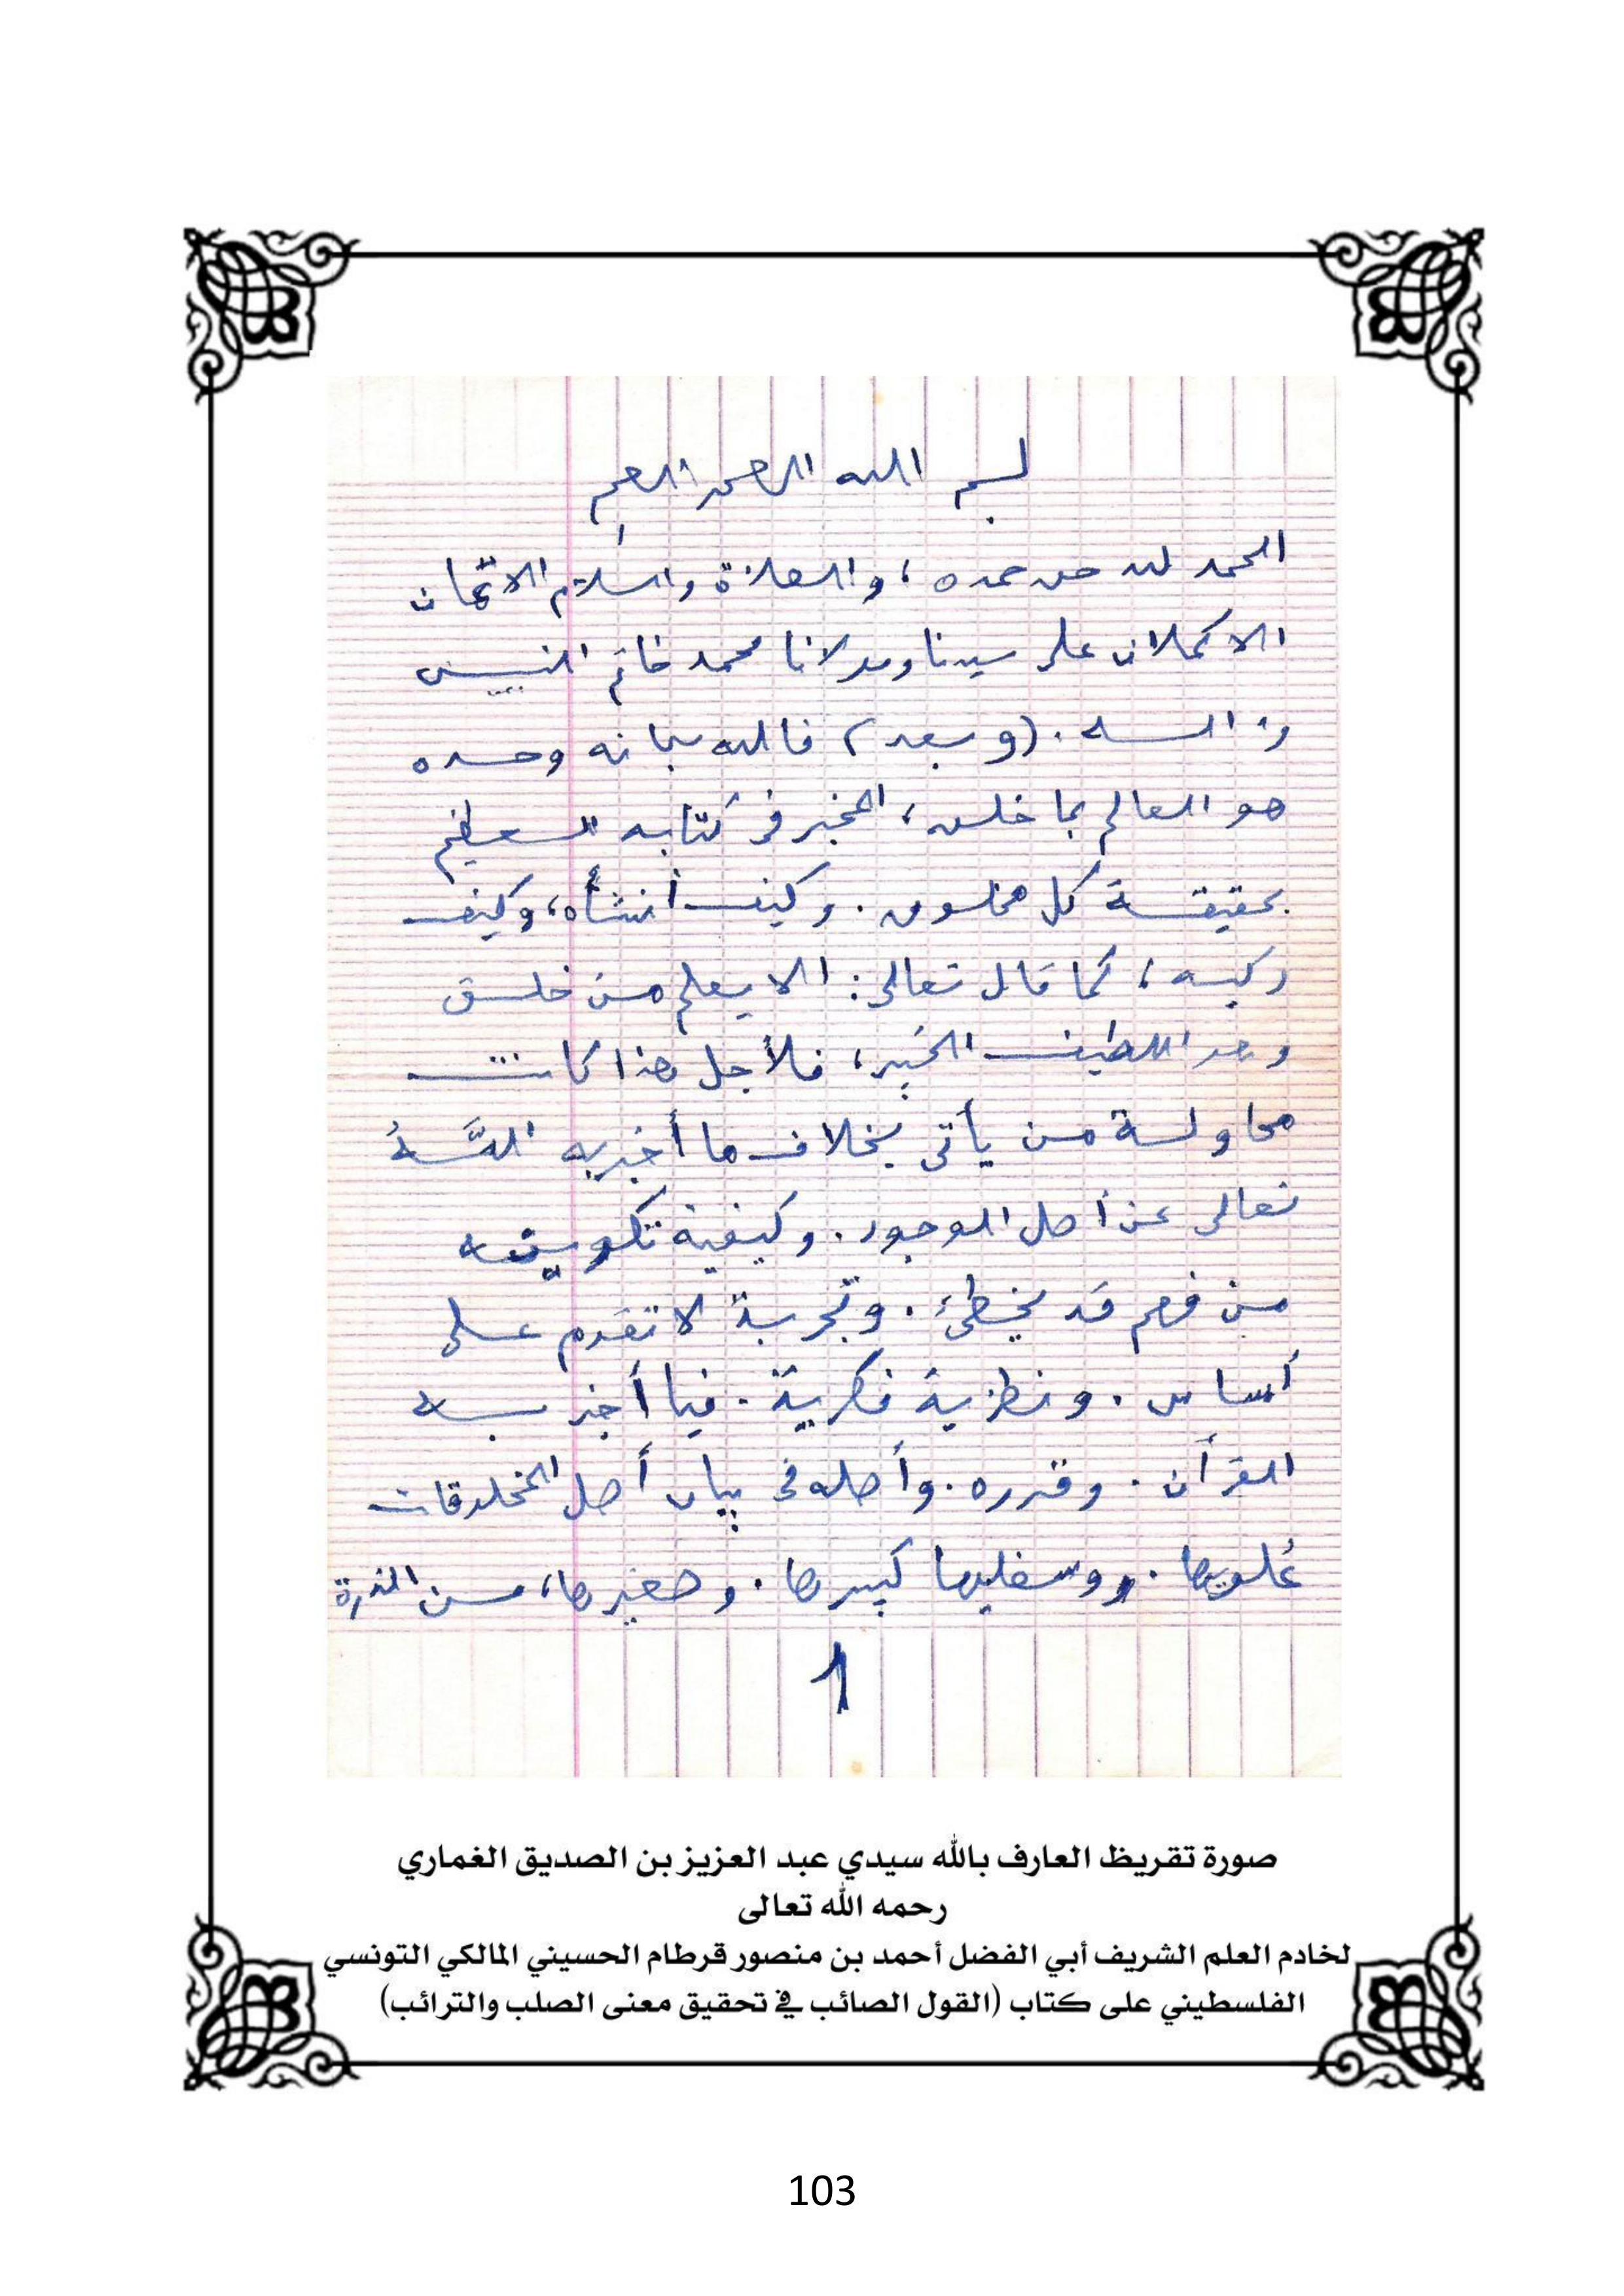 بسم الله الرحمن الرحيم
الحمد لله حق حمده، والصلاة والسلام الاتمان
الاكملان على سيدنا ومولانا محمد خاتم النبيين
وآله. (وبعد) فالله سبحانه وحده
هو العالم بما خلق، المخبر في كتابه العظيم
بحقيقة كل مخلوق. وكيف أنشأه، وكيف
ركبه، كما قال تعالى: الا يعلم من خلق
وهو اللطيف الخبير، فلأجل هذا كانت
محاولة من يأتى بخلاف ما أخبر به اللَّهُ
تعالى عن أصل الوجود. وكيفية تكوينه
من فهم قد يخطئ. وتجربة لا تقدم على
أساس. ونظرية فكرية. فيما أخبر به
القرآن. وقرره. وأصله فى بيان أصل المخلوقات
عُلويها. وسفليها كبيرها. وصغيرها، من الذرة
1
صورة تقريظ العارف بالله سيدي عبد العزيز بن الصديق الغماري
رحمه الله تعالى
لخادم العلم الشريف أبي الفضل أحمد بن منصور قرطام الحسيني المالكي التونسي
الفلسطيني على كتاب (القول الصائب في تحقيق معنى الصلب والترائب)
103